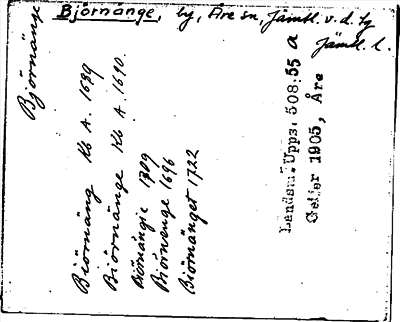 Björnänge, by, Åre sn, Jämtl. v. d. tg
Jämtl. l.
Björnänge
Biörnäng Kb A. 1639
Biörnänge Kb A. 1690.
Biörnängie 1709
Biörnenge 1696
Biörnänget 1722
Landsm. Upps. 508:55 a
Geijer 1905, Åre